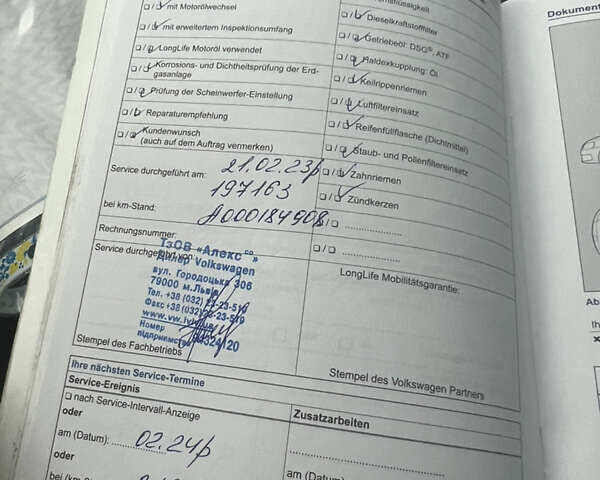 mit Motorölwechsel
mit erweitertem Inspektionsumfang
LongLife Motoröl verwendet
Korrosions- und Dichtheitsprüfung der Erd-
gasanlage
Prüfung der Scheinwerfer-Einstellung
Reparaturempfehlung
Kundenwunsch
(auch auf dem Auftrag vermerken)
Dieselkraftstofffilter
Getriebeöl: DSG®, ATF
Haldexkupplung: Öl
Keilrippenriemen
Luftfiltereinsatz
Reifenfüllflasche (Dichtmittel)
Staub- und Pollenfiltereinsatz
Zahnriemen
Zündkerzen
Service durchgeführt am: 21.02.23р
bei km-Stand: 197163
Rechnungsnummer: А000184908
Service durchgeführt von:
ТзОВ «Алекс со»
Дилер Volkswagen
вул. Городоцька 306
79000 м.Львів
Тел. +38 (032)
Факс +38 (032)
Номер
Stempel des Fachbetriebs
LongLife Mobilitätsgarantie:
Stempel des Volkswagen Partners
Ihre nächsten Service-Termine
Service-Ereignis
nach Service-Intervall-Anzeige
oder
am (Datum): 02.24р
oder
Zusatzarbeiten
am (Datum)
Dokument